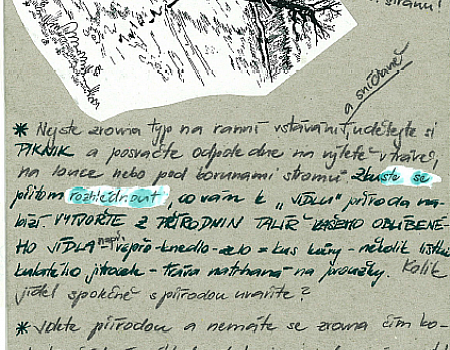 stránu!
a snídaně
* Nejste zrovna typ na ranní vstávání, udělejte si
PIKNIK a posvačte odpoledne na výletě v trávě,
na louce nebo pod korunami stromů. Zkuste se
přitom rozhlédnout, co vám k „jídlu" příroda na-
bízí. VYTVOŘTE Z PŘÍRODNIN TALÍŘ VAŠEHO OBLÍBENÉ-
HO JÍDLA např. vepřo-knedlo-zelo = kus kůry - několik lístků
kulatého jitrocele - tráva natrhaná na proužky. Kolik
jídel společně s přírodou uvaříte?
* Jdete přírodou a nemáte se zrovna čím ko-